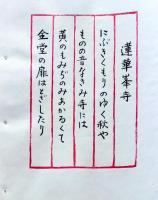 蓮華峯寺
にぶきくもりのゆく秋や
ものの音なきみ寺には
黄のもみぢのみあかるくて
金堂の扉はとざしたり